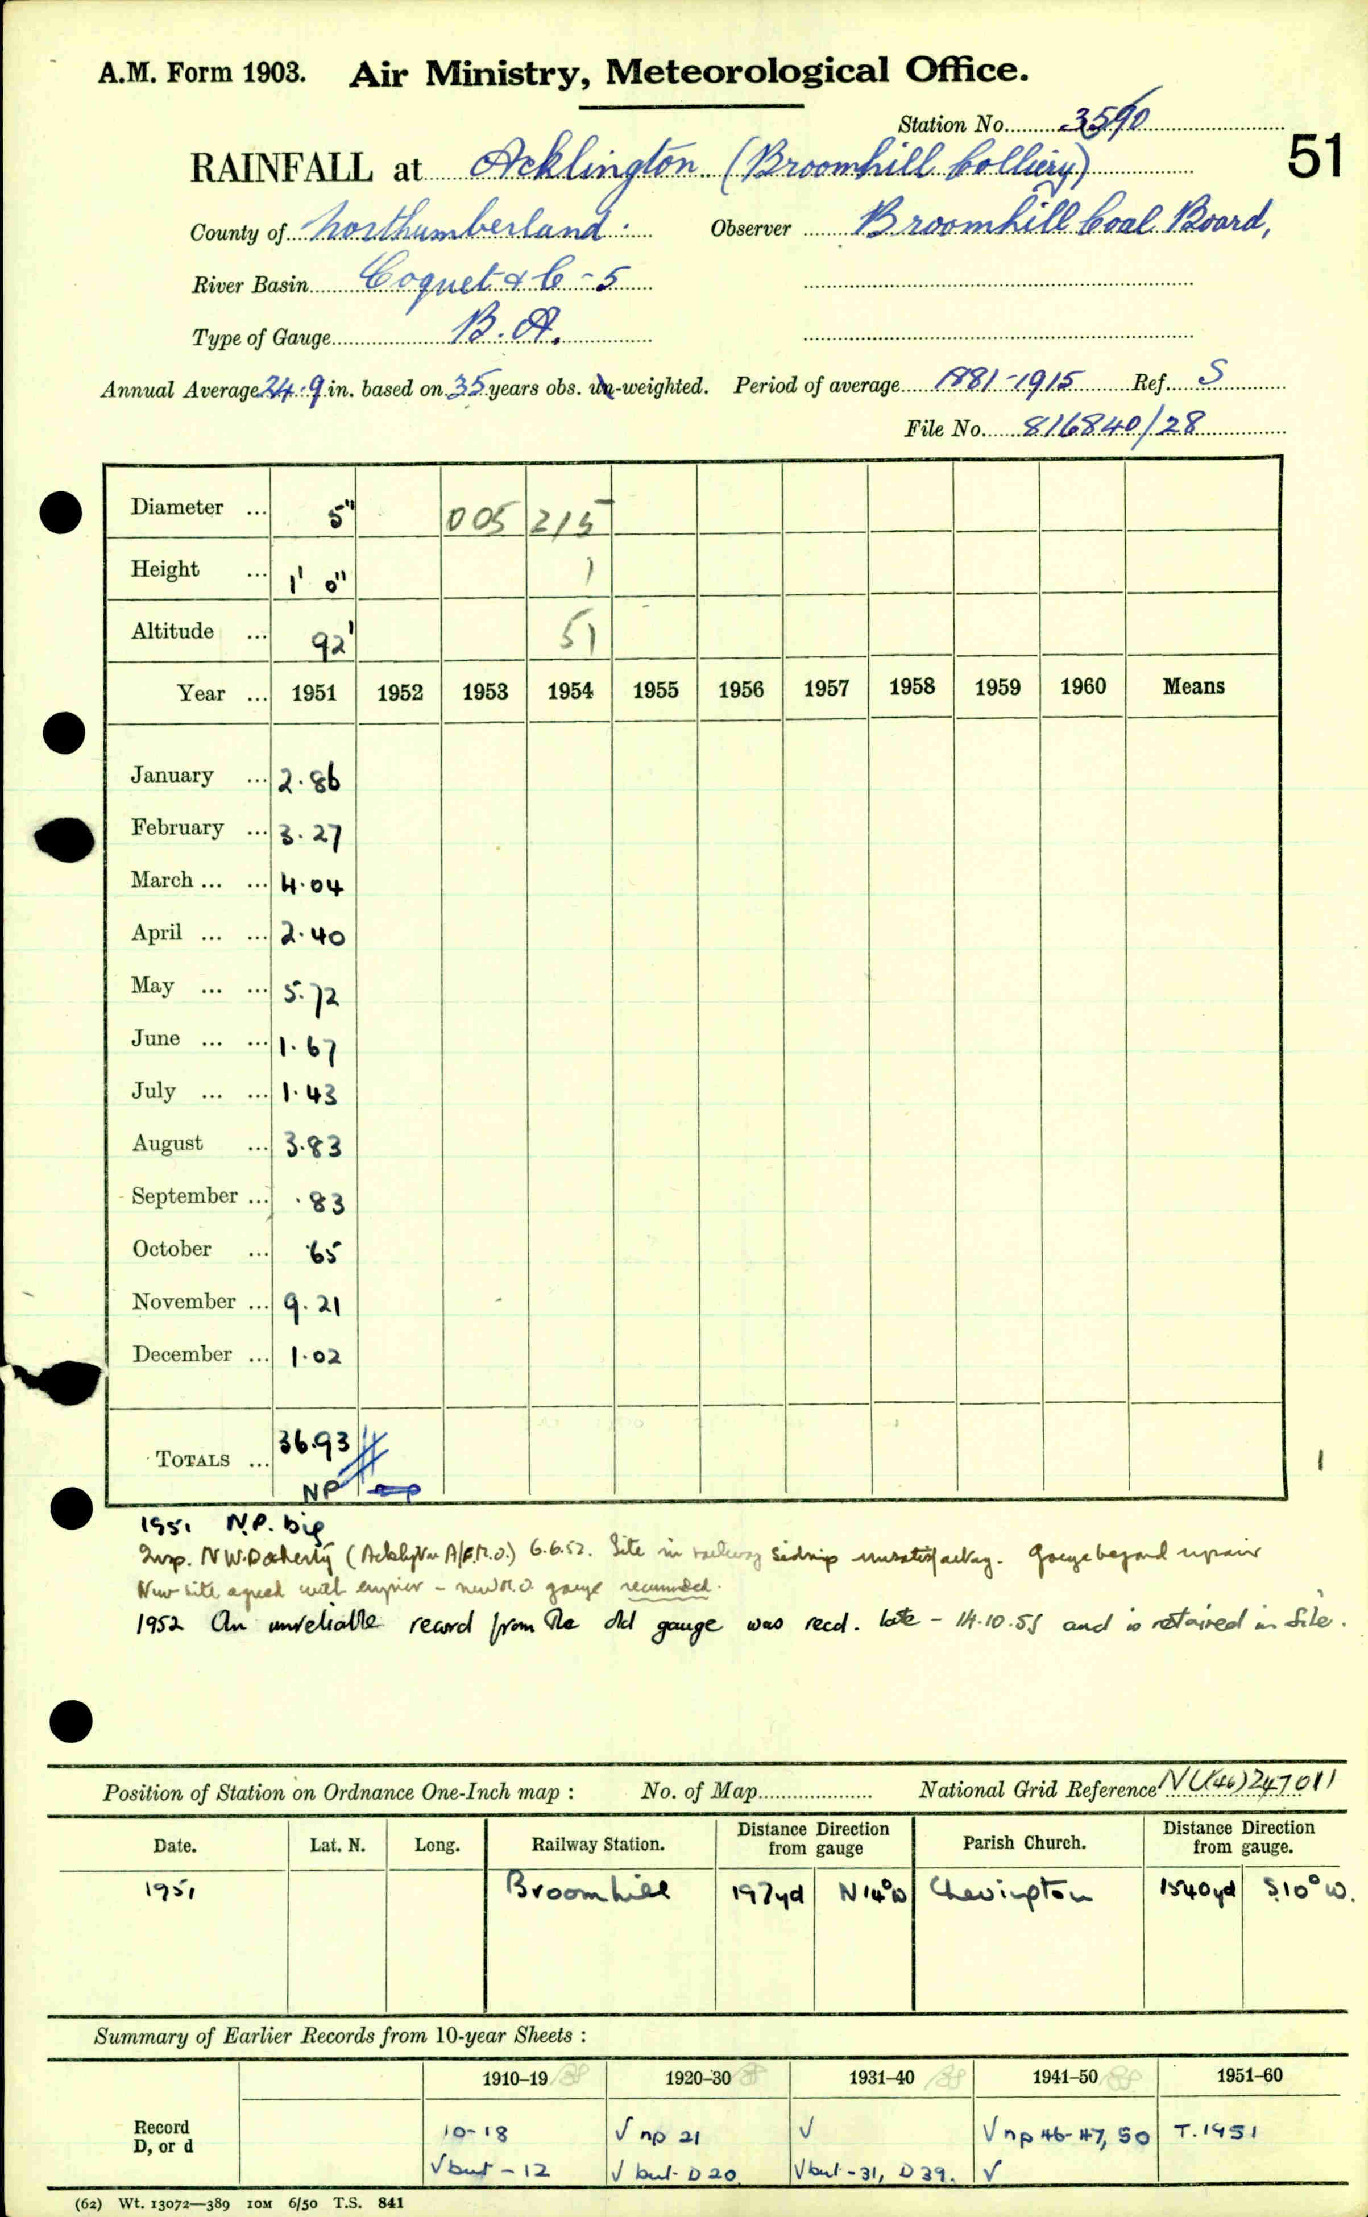 A.M. Form 1903. Air Ministry, Meteorological Office.
Station No. 3590
51
RAINFALL at Acklington (Broomhill Colliery)
County of Northumberland. Observer Broomhill Coal Board,
River Basin Coquet & C - 5
Type of Gauge B.A.
Annual Average 24.9 in. based on 35 years obs. un-weighted. Period of average 1881-1915 Ref. S
File No. 816840/28
Diameter ... 5" 005 215
Height ... 1' 0" 1
Altitude ... 92' 51
Year ... 1951 1952 1953 1954 1955 1956 1957 1958 1959 1960 Means
January ... 2.86
February ... 3.27
March ... ... 4.04
April ... ... 2.40
May ... ... 5.72
June ... ... 1.67
July ... ... 1.43
August ... 3.83
September ... .83
October ... .65
November ... 9.21
December ... 1.02
TOTALS ... 36.93
NP
1951 N.P. big
Insp. N W. Docherty (Acklington A/F.M.O.) 6.6.52. Site in railway siding unsatisfactory. Gauge beyond repair
New site agreed with engineer - new M.O. gauge recommended.
1952 An unreliable record from the old gauge was recd. late - 14.10.55 and is retained in file.
Position of Station on Ordnance One-Inch map : No. of Map National Grid Reference NU(46)247011
Date. Lat. N. Long. Railway Station. Distance Direction from gauge Parish Church. Distance Direction from gauge.
1951 Broomhill 197yd N14°W Chevington 1540yd S.10°W.
Summary of Earlier Records from 10-year Sheets :
1910–19 1920–30 1931–40 1941–50 1951–60
Record 10-18 √ np 21 √ √ np 46-47, 50 T.1951
D, or d √ but - 12 √ but D20 √ but -31, D39. √
(62) Wt. 13072—389 10M 6/50 T.S. 841